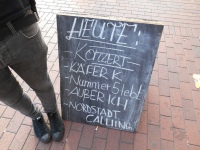 HEUTE:
KONZERT
-KÄFER K
-Nummer 5 lebt
-AUBER ICH!
-NORDSTADT
CALLING!